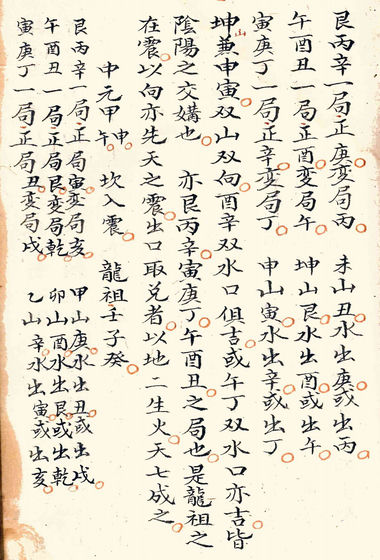 艮丙辛一局正庚变局丙　未山丑水出庚或出丙
午酉丑一局正酉変局午　坤山艮水出酉或出午
寅庚丁一局正辛変局丁　申山寅水出辛或出丁
坤兼申寅双山双向酉辛双水口俱吉或午丁双水口亦吉皆
陰陽之交媾也　亦艮丙辛寅庚丁午酉丑之局也是龍祖之
在震以向亦先天之震出口取兑者以地二生火天七成之
中元甲午申　坎入震　龍祖壬子癸
艮丙辛一局正局寅变局亥　甲山庚水出丑或出戌
午酉丑一局正局艮変局乾　卯山酉水出艮或出乾
寅庚丁一局正局丑変局戌　乙山辛水出寅或出亥